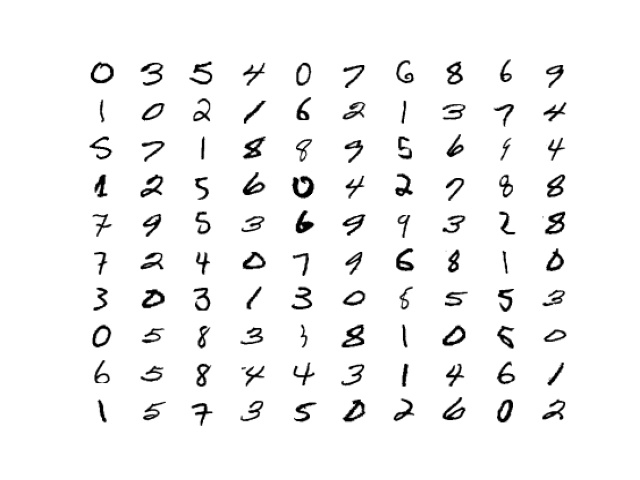 0 3 5 4 0 7 6 8 6 9
1 0 2 1 6 2 1 3 7 4
5 7 1 8 8 9 5 6 9 4
1 2 5 6 0 4 2 7 8 8
7 9 5 3 6 9 9 3 2 8
7 2 4 0 7 9 6 8 1 0
3 0 3 1 3 0 8 5 5 3
0 5 8 3 3 8 1 0 5 0
6 5 8 4 4 3 1 4 6 1
1 5 7 3 5 0 2 6 0 2